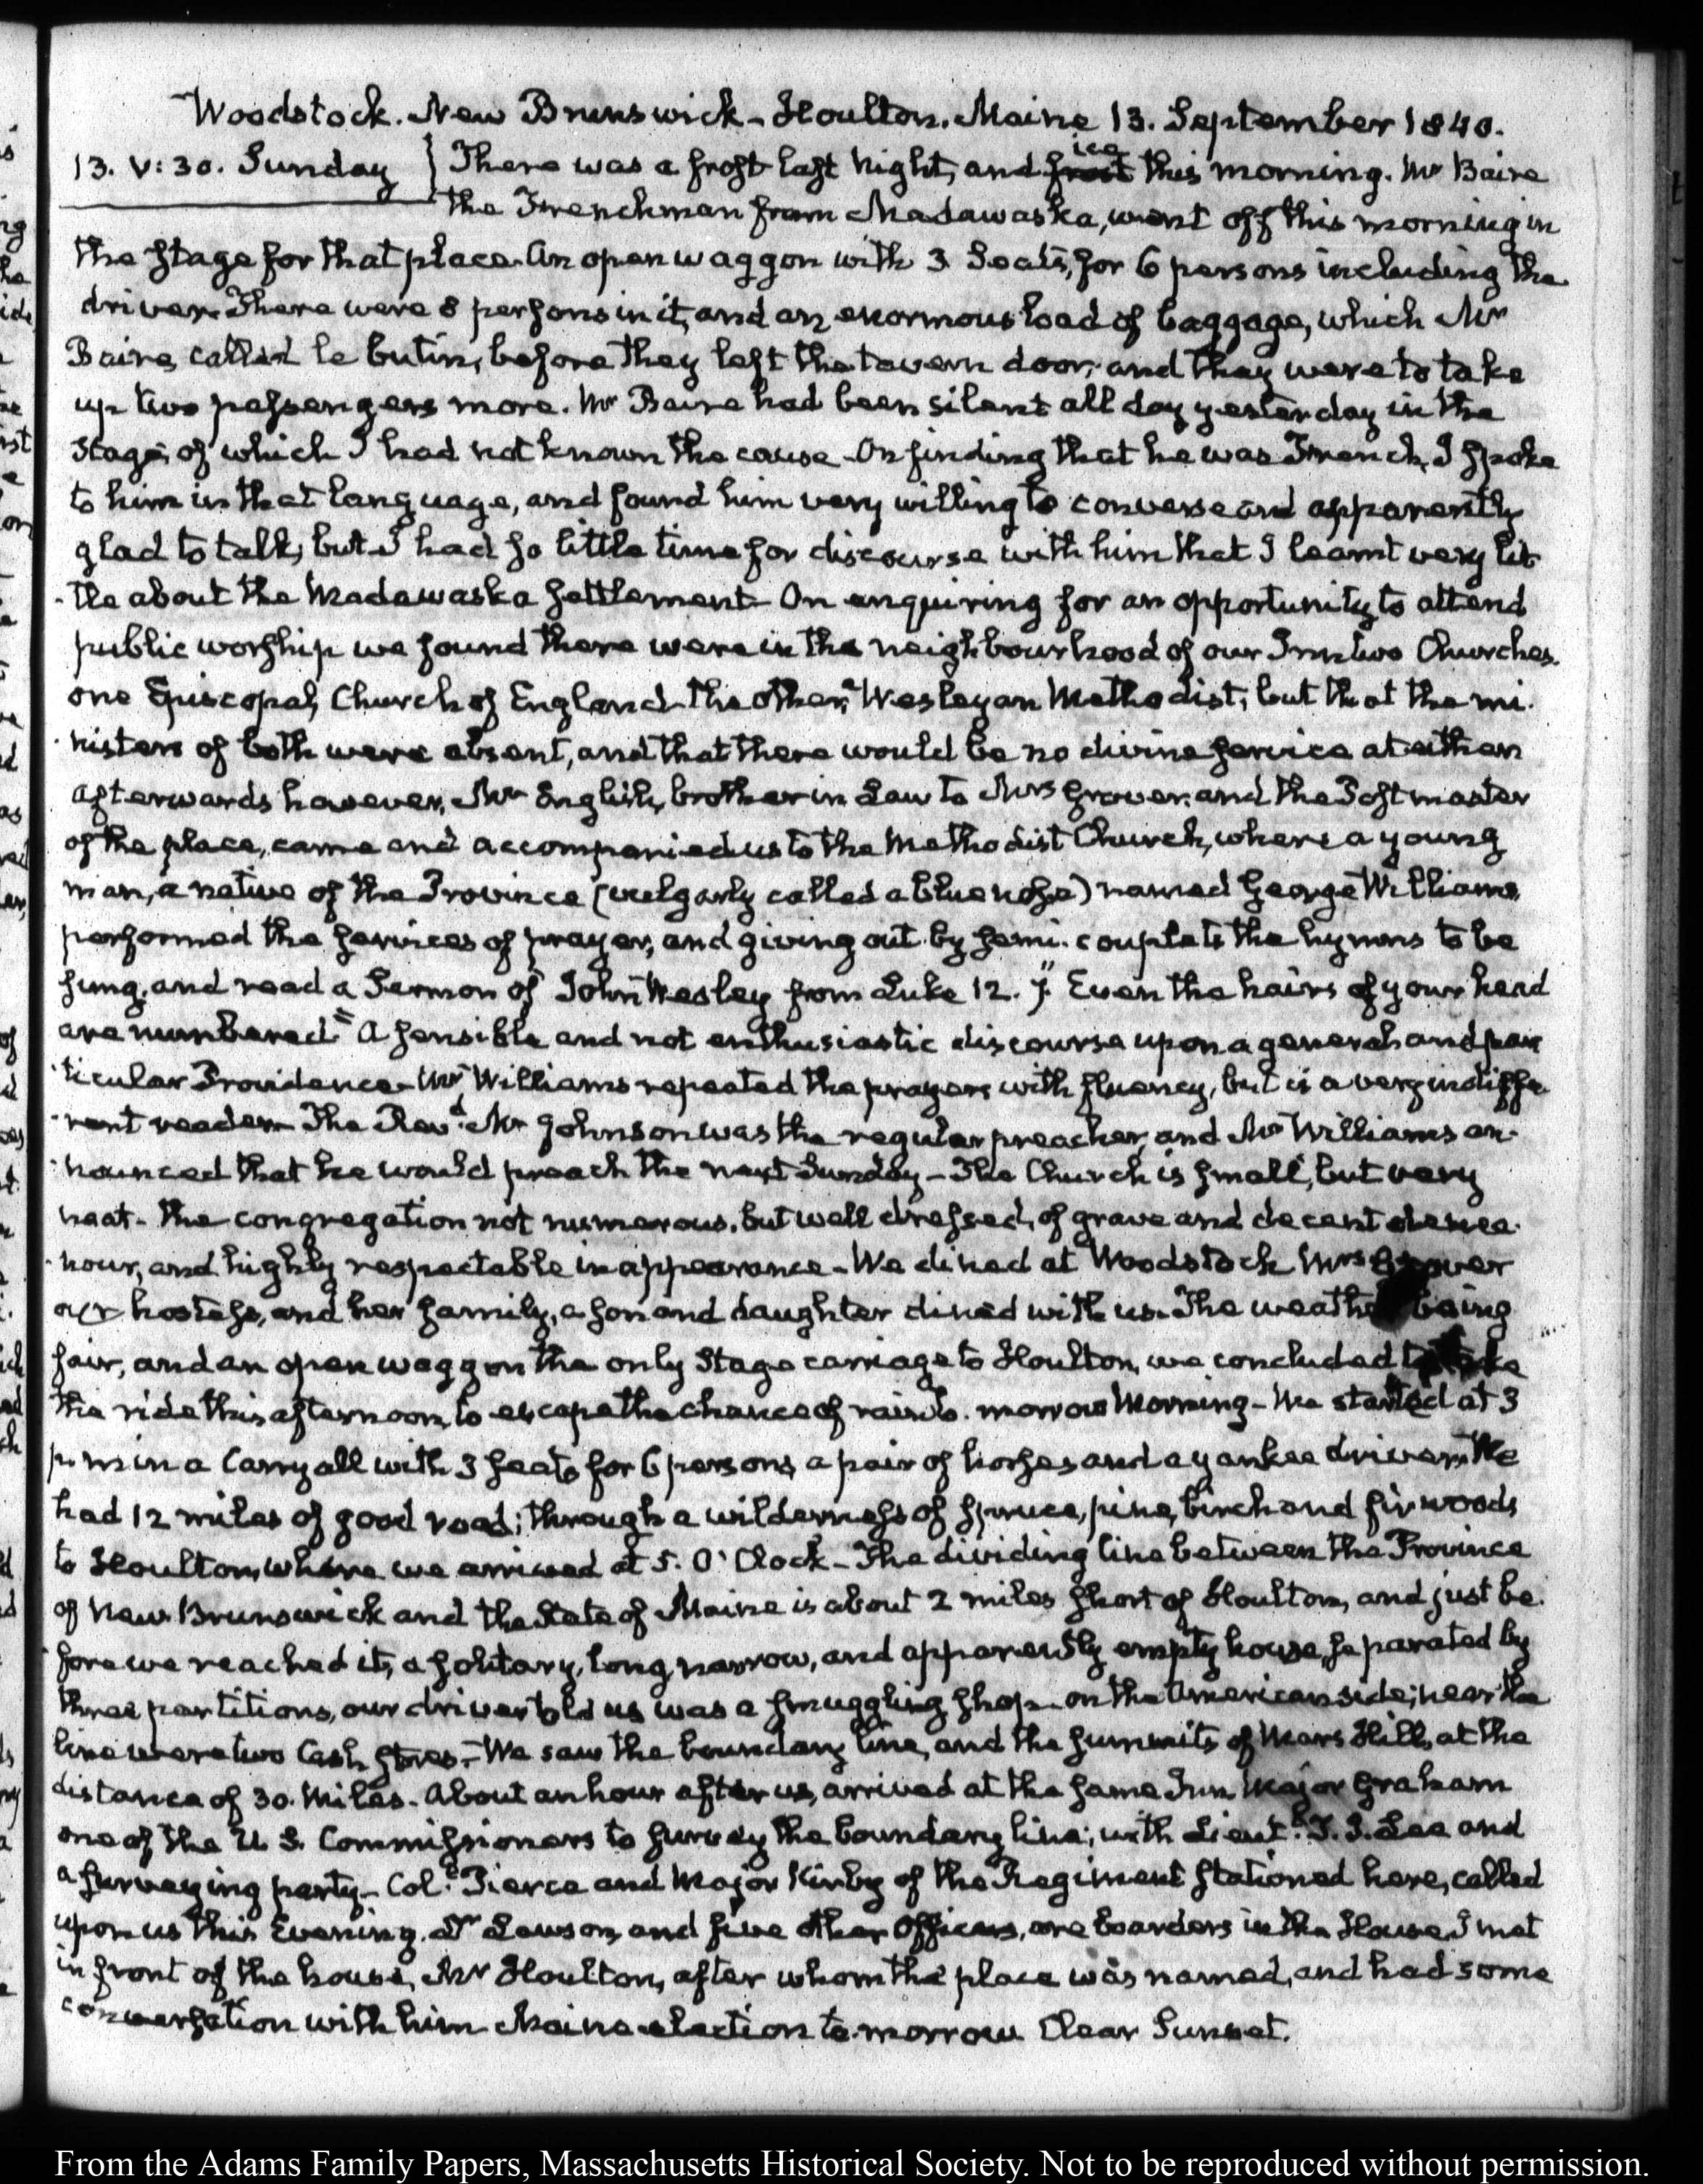 Woodstock. New Brunswick - Houlton. Maine 13. September 1840.
13. V:30. Sunday } There was a frost last night, and frost ice this morning. Mr Baire
the Frenchman from Madawaska, went off this morning in
the stage for that place. An open waggon with 3 seats, for 6 persons including the
driver. There were 8 persons in it, and an enormous load of baggage, which Mr
Baire called le butin, before they left the tavern door, and they were to take
up two passengers more. Mr Baire had been silent all day yesterday in the
stage, of which I had not known the cause - On finding that he was French, I spoke
to him in that language, and found him very willing to converse and apparently
glad to talk, but I had so little time for discourse with him that I learnt very lit-
-tle about the Madawaska settlement - On enquiring for an opportunity to attend
public worship we found there were in the neighbourhood of our Inn two Churches.
one Episcopal, Church of England - the other, Wesleyan Methodist; but that the mi-
-nisters of both were absent, and that there would be no divine service at either
afterwards however, Mr English, brother in Law to Mrs Grover, and the Postmaster
of the place, came and accompanied us to the Methodist Church, where a young
man, a native of the Province (vulgarly called a blue nose) named George Williams,
performed the services of prayer, and giving out by semi-couplets the hymns to be
sung, and read a Sermon of John Wesley from Luke 12. 7. "Even the hairs of your head
are numbered" A sensible and not enthusiastic discourse upon a general and par
-ticular Providence - Mr Williams repeated the prayers with fluency, but is a very indiffe-
-rent reader - The Revd. Mr Johnson was the regular preacher, and Mr Williams an-
-nounced that he would preach the next Sunday - The Church is small, but very
neat - the congregation not numerous, but well dressed, of grave and decent demea-
-nour, and highly respectable in appearance - We dined at Woodstock Mrs Grover
our hostess, and her family, a son and daughter dined with us. The weather being
fair, and an open waggon the only Stage carriage to Houlton, we concluded to take
the ride this afternoon, to escape the chance of rain to-morrow Morning - We started at 3
p.m. in a Carryall with 3 seats for 6 persons, a pair of horses and a yankee driver. We
had 12 miles of good road; through a wilderness of spruce, pine, birch and fir woods
to Houlton, where we arrived at 5. O'Clock - The dividing line between the Province
of New Brunswick and the State of Maine is about 2 miles short of Houlton, and just be-
-fore we reached it, a solitary, long, narrow, and apparently empty house, separated by
three partitions, our driver told us was a smuggling shop - on the American side, near the
line were two Cash stores - We saw the boundary line, and the summits of Mars Hill, at the
distance of 30. Miles. About an hour after us, arrived at the same Inn Major Graham
one of the U. S. Commissioners to survey the boundary line; with Lieutt. T. J. Lee and
a surveying party - Coll. Pierce and Major Kirby of the Regiment stationed here, called
upon us this Evening. Dr Lawson, and five other Officers, are boarders in the House. I met
in front of the house, Mr Houlton, after whom the place was named, and had some
conversation with him - Maine election to-morrow. Clear Sunset.
From the Adams Family Papers, Massachusetts Historical Society. Not to be reproduced without permission.